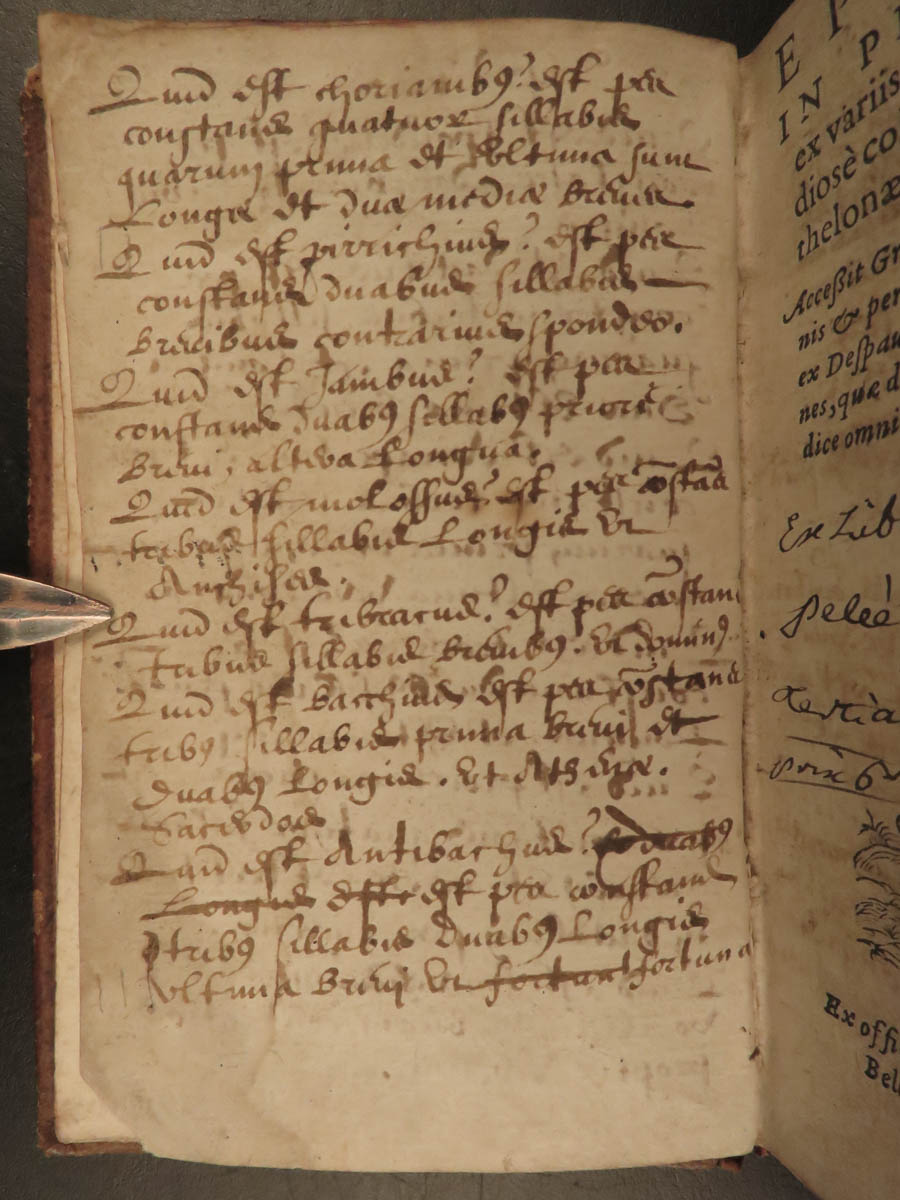 Quid est choriambꝰ? est pes
constans quatuor sillabis
quarum prima et vltima sunt
Longæ et duæ mediæ breues.
Quid est pirrichius? est pes
constans duabus sillabis
breuibus contrarius spondeo.
Quid est Jambus? est pes
constans duabꝰ sillabꝰ priore
breui, altera Longua.
Quid est molossus? est pes cōstās
tribus sillabis Longis vt
Anchises.
Quid est tribracus? est pes cōstans
tribus sillabis breuibꝰ. vt dominꝰ
Quid est bacchius est pes cōstans
tribꝰ sillabis prima breui et
duabꝰ Longis. vt
Sacerdos
Quid est Antibachius? duabꝰ
Longis est pes constans
tribꝰ sillabis duabꝰ Longis
vltima breui vt fortuna
E P
IN P
ex variis
diosè co
thelonæ
Acceßit Gr
nis & per
ex Despau
nes, quæ d
dice omni
Ex Lib
Peleé
tertia
prix 6
Ex offi
Bel